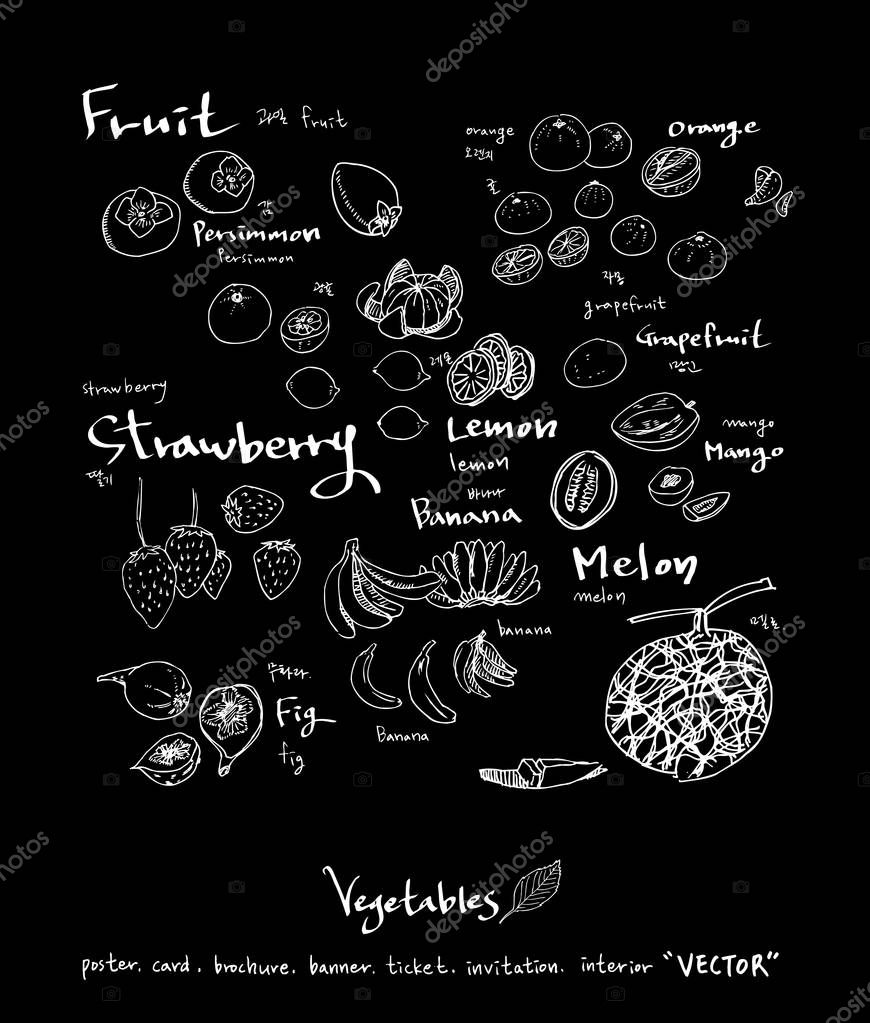 Fruit 과일 fruit
orange
오렌지
Orange
감
Persimmon
Persimmon
귤
자몽
grapefruit
Grapefruit
망고
레몬
strawberry
Strawberry
딸기
Lemon
lemon
mango
Mango
바나나
Banana
Melon
melon
멜론
banana
Banana
무화과.
Fig
fig
Vegetables
poster. card. brochure. banner. ticket. invitation. interior "VECTOR"
depositphotos
depositphotos
depositphotos
depositphotos
depositphotos
depositphotos
depositphotos
depositphotos